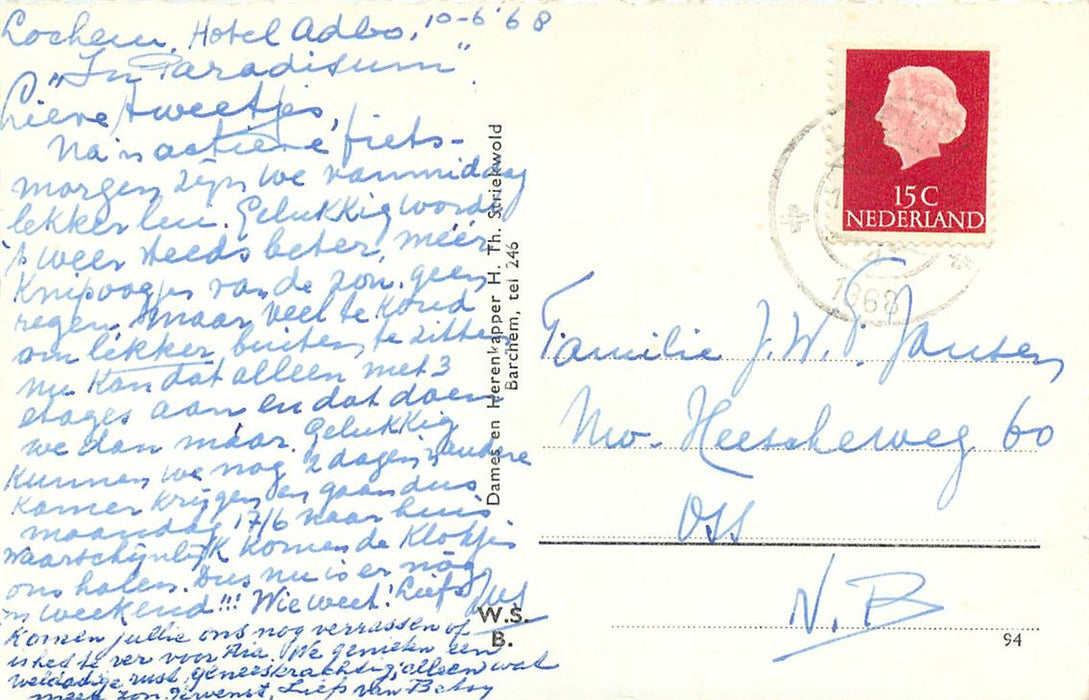 Lochem, Hotel Adbo, 10-6-'68
"In Paradisum"
Lieve tweetjes,
Na 'n actieve fiets-
morgen zijn we vanmiddag
lekker lui. Gelukkig wordt
't weer steeds beter, méér
Knipoogjes van de zon, geen
regen, maar veel te koud
om lekker buiten te zitten
nu. Kan dat alleen met 3
etages aan en dat doen
we dan maar. Gelukkig
kunnen we nog 2 dagen 'n andere
Kamer krijgen en gaan dus
maandag 17/6 naar huis
Waarschijnlijk komen de Klokjes
ons halen. Dus nu is er nog
'n weekend!!! Wie weet! Liefs
Komen jullie ons nog verrassen of
is het te ver voor Ria. We genieten een
weldadige rust, geneeskrachtig, alleen wat
meer zon gewenst. Liefs van Betsy
Dames en Heerenkapper H. Th. Striekwold
Barchem, tel 246
W.S.
B.
15 C
NEDERLAND
1968
Familie J.W.F. Jansen
Nw. Heescheweg 60
OSS
N.B
94